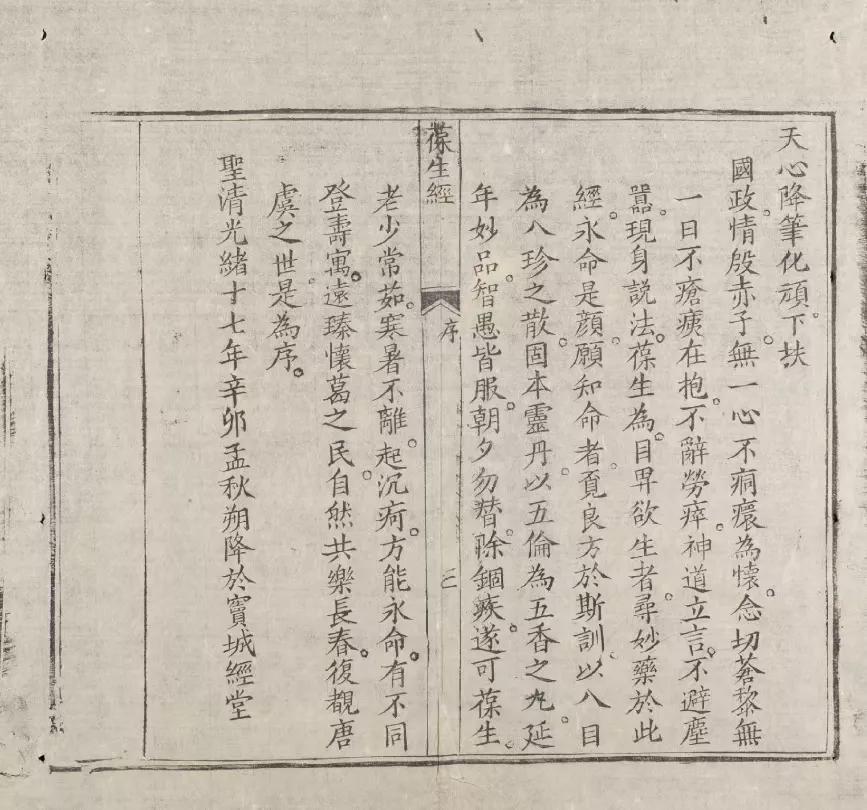 天心降筆化頑。下扶
國政。情殷赤子。無一心不痌瘝為懷。念切蒼黎。無
一日不瘡痍在抱。不辭勞瘁。神道立言。不避塵
囂。現身説法。葆生為目。畀欲生者。尋妙藥於此
經。永命是顔。願知命者。覓良方於斯訓。以八目
為八珍之散。固本靈丹。以五倫為五香之丸。延
年妙品。智愚皆服。朝夕勿替。除錮疾。遂可葆生。
葆生經
序
二
老少常茹。寒暑不離。起沉疴。方能永命。有不同
登壽寓。遠臻懷葛之民。自然共樂長春。復覩唐
虞之世。是為序。
聖清光緒十七年辛卯孟秋朔降於竇城經堂